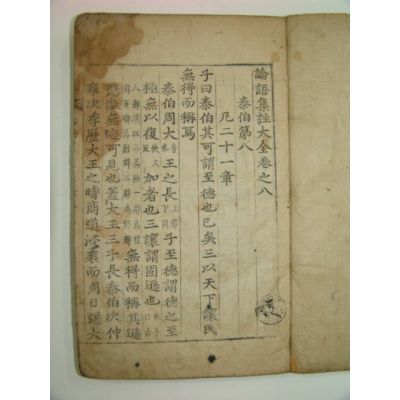 論語集註大全卷之八
泰伯第八
凡二十一章
子曰泰伯其可謂至德也已矣三以天下讓民
無得而稱焉
泰伯周大王之長子至德謂德之至
極無以復加者也三讓謂固遜也
無得而稱其遜
隱微無迹可見也蓋大王三子長泰伯次仲
雍次季歷大王之時商道浸衰而周日彊大